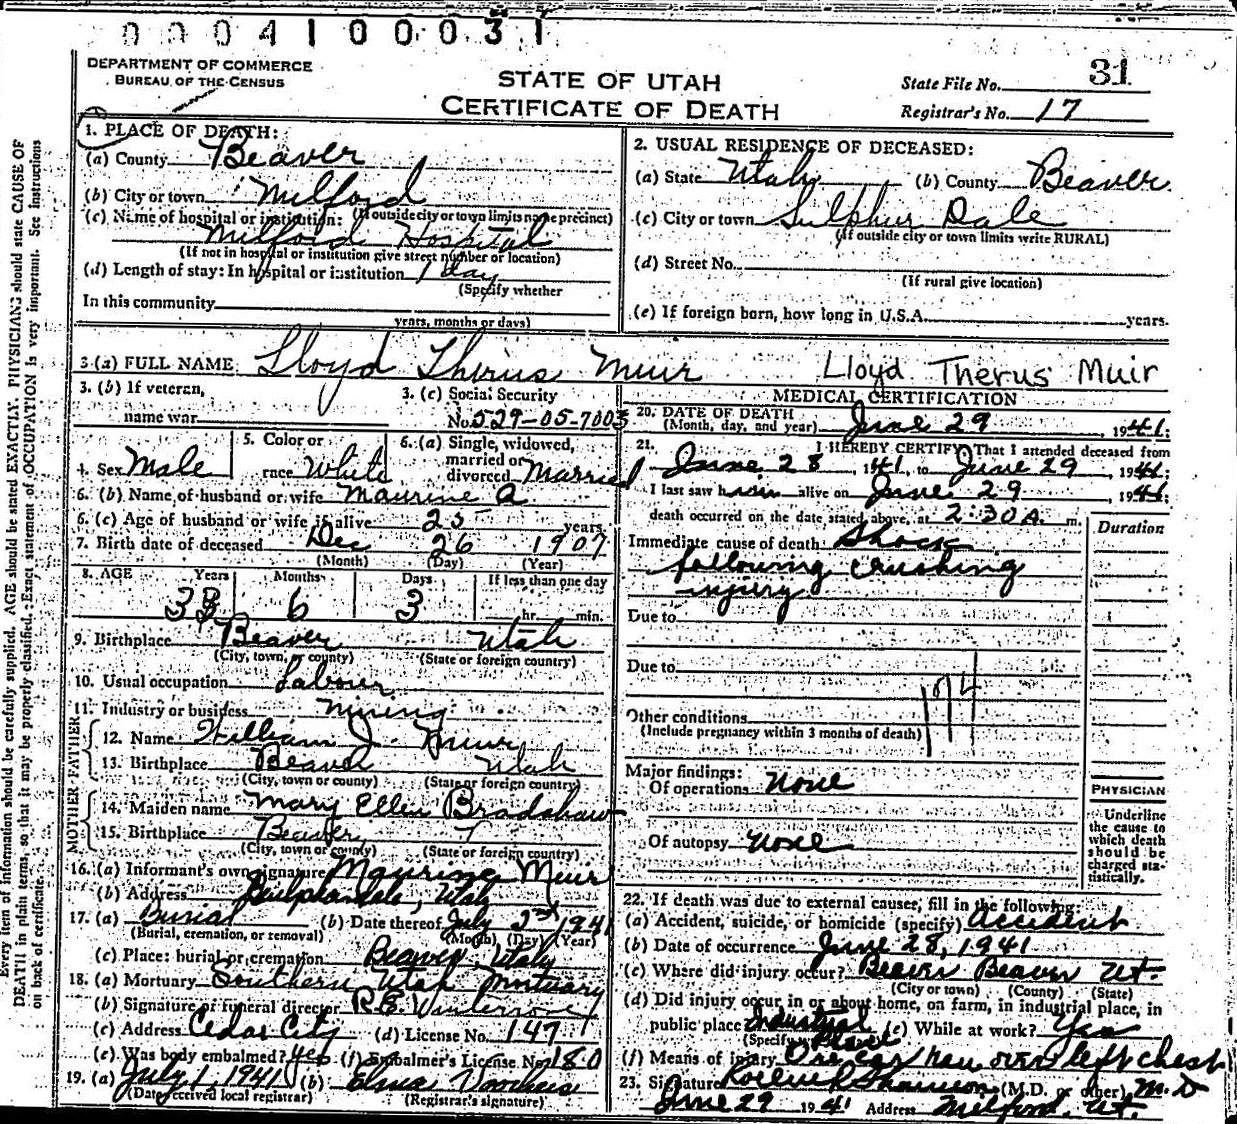 0004100031
DEPARTMENT OF COMMERCE
BUREAU OF THE CENSUS
STATE OF UTAH
CERTIFICATE OF DEATH
State File No. 31
Registrar's No. 17
Every item of information should be carefully supplied. AGE should be stated EXACTLY. PHYSICIANS should state CAUSE OF
DEATH in plain terms, so that it may be properly classified. Exact statement of OCCUPATION is very important. See Instructions
on back of certificate.
1. PLACE OF DEATH:
(a) County Beaver
(b) City or town Milford
(c) Name of hospital or institution: (If outside city or town limits name precinct)
Milford Hospital
(If not in hospital or institution give street number or location)
(d) Length of stay: In hospital or institution 1 day
(Specify whether
In this community
years, months or days)
2. USUAL RESIDENCE OF DECEASED:
(a) State Utah (b) County Beaver
(c) City or town Sulphur Dale
(If outside city or town limits write RURAL)
(d) Street No.
(If rural give location)
(e) If foreign born, how long in U.S.A. years.
3. (a) FULL NAME Lloyd Therus Muir Lloyd Therus Muir
3. (b) If veteran,
name war
3. (c) Social Security
No. 529-05-7003
4. Sex Male
5. Color or
race White
6. (a) Single, widowed,
married or
divorced Married
6. (b) Name of husband or wife Maurine A
6. (c) Age of husband or wife if alive 25 years
7. Birth date of deceased Dec 26 1907
(Month) (Day) (Year)
8. AGE Years Months Days If less than one day
33 6 3 hr. min.
9. Birthplace Beaver Utah
(City, town, or county) (State or foreign country)
10. Usual occupation Labour
11. Industry or business Mining
FATHER
12. Name William J. Muir
13. Birthplace Beaver Utah
(City, town or county) (State or foreign country)
MOTHER
14. Maiden name Mary Ellen Bradshaw
15. Birthplace Beaver
(City, town or county) (State or foreign country)
16. (a) Informant's own signature Maurine Muir
(b) Address Sulphurdale, Utah
17. (a) Burial (b) Date thereof July 2nd 1941
(Burial, cremation, or removal) (Month) (Day) (Year)
(c) Place: burial or cremation Beaver Utah
18. (a) Mortuary Southern Utah Mortuary
(b) Signature of funeral director R.E.
(c) Address Cedar City (d) License No. 147
(e) Was body embalmed? Yes (f) Embalmer's License No. 180
19. (a) July 1, 1941 (b) Elma
(Date received local registrar) (Registrar's signature)
MEDICAL CERTIFICATION
20. DATE OF DEATH
(Month, day, and year) June 29, 1941.
21. I HEREBY CERTIFY, That I attended deceased from
June 28 1941 to June 29, 1941.
I last saw him alive on June 29, 1941.
death occurred on the date stated above, at 2:30 A. m.
Duration
Immediate cause of death: Shock
following crushing
injury
Due to
Due to
174
Other conditions
(Include pregnancy within 3 months of death)
Major findings:
Of operations None
Of autopsy None
PHYSICIAN
Underline
the cause to
which death
should be
charged sta-
tistically.
22. If death was due to external causes, fill in the following:
(a) Accident, suicide, or homicide (specify) Accident
(b) Date of occurrence June 28, 1941
(c) Where did injury occur? Beaver Beaver Ut.
(City or town) (County) (State)
(d) Did injury occur in or about home, on farm, in industrial place, in
public place Industrial (e) While at work? Yes
(Specify Place
(f) Means of injury Ore car ran over left chest
23. Signature (M.D. or other) M.D
June 29 1941 Address Milford, Ut.